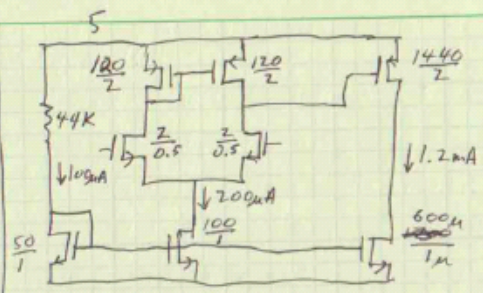 5
120/2
120/2
1440/2
44K
2/0.5
2/0.5
↓100μA
↓200μA
↓1.2mA
50/1
100/1
600μ/1μ